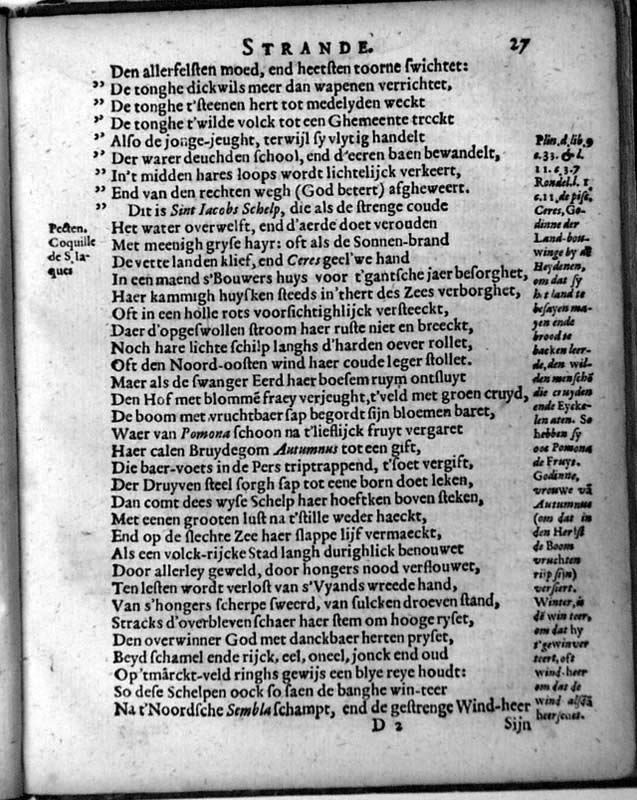 STRANDE. 27
Den allerfelsten moed, end heetsten toorne swichtet:
” De tonghe dickwils meer dan wapenen verrichtet,
” De tonghe t'steenen hert tot medelyden weckt
” De tonghe t'wilde volck tot een Ghemeente treckt
” Also de jonge-jeught, terwijl sy vlytig handelt
” Der warer deuchden school, end d'eeren baen bewandelt,
” In't midden hares loops wordt lichtelijck verkeert,
” End van den rechten wegh (God betert) afgheweert.
” Dit is Sint Iacobs Schelp, die als de strenge coude
Het water overwelft, end d'aerde doet verouden
Met meenigh gryse hayr: oft als de Sonnen-brand
De vette landen klief, end Ceres geel'we hand
In een maend s'Bouwers huys voor t'gantsche jaer besorghet,
Haer kammigh huysken steeds in'thert des Zees verborghet,
Oft in een holle rots voorsichtighlijck versteeckt,
Daer d'opgeswollen stroom haer ruste niet en breeckt,
Noch hare lichte schilp langhs d'harden oever rollet,
Oft den Noord-oosten wind haer coude leger stollet.
Maer als de swanger Eerd haer boesem ruym ontsluyt
Den Hof met blommē fraey verjeught, t'veld met groen cruyd,
De boom met vruchtbaer sap begordt sijn bloemen baret,
Waer van Pomona schoon na t'lieflijck fruyt vergaret
Haer calen Bruydegom Autumnus tot een gift,
Die baer-voets in de Pers triptrappend, t'soet vergift,
Der Druyven steel sorgh sap tot eene born doet leken,
Dan comt dees wyse Schelp haer hoeftken boven steken,
Met eenen grooten lust na t'stille weder haeckt,
End op de slechte Zee haer slappe lijf vermaeckt,
Als een volck-rijcke Stad langh durighlick benouwet
Door allerley geweld, door hongers nood verflouwet,
Ten lesten wordt verlost van s'Vyands wreede hand,
Van s'hongers scherpe sweerd, van sulcken droeven stand,
Stracks d'overbleven schaer haer stem om hooge ryset,
Den overwinner God met danckbaer herten pryset,
Beyd schamel ende rijck, eel, oneel, jonck end oud
Op 'tmārckt-veld ringhs gewijs een blye reye houdt:
So dese Schelpen oock so saen de banghe win-teer
Na t'Noordsche Sembla schampt, end de gestrenge Wind-heer
D 2 Sijn
Pecten.
Coquille
de S. Ia-
ques
Plin. d. lib. 9
c. 33. & l.
11. c 3. 7
Rondel. l. 1
c. 11. de pise,
Ceres, Go-
dinne der
Land-bou-
winge by dē
Heydenen,
om dat sy
het land te
besayen ma-
jen ende
brood te
backen leer-
de, den wil-
den menschē
die cruyden
ende Eycke-
len aten. So
hebben sy
ooc Pomona
de Fruyt-
Godinne,
vrouwe vā
Autumnus
(om dat in
den Herfst
de Boom
vruchten
rijp sijn)
versiert.
Winter, is
dē win teer,
om dat hy
t'gewin ver
teert, oft
wind-heer
om dat de
wind alsdā
heerschet.